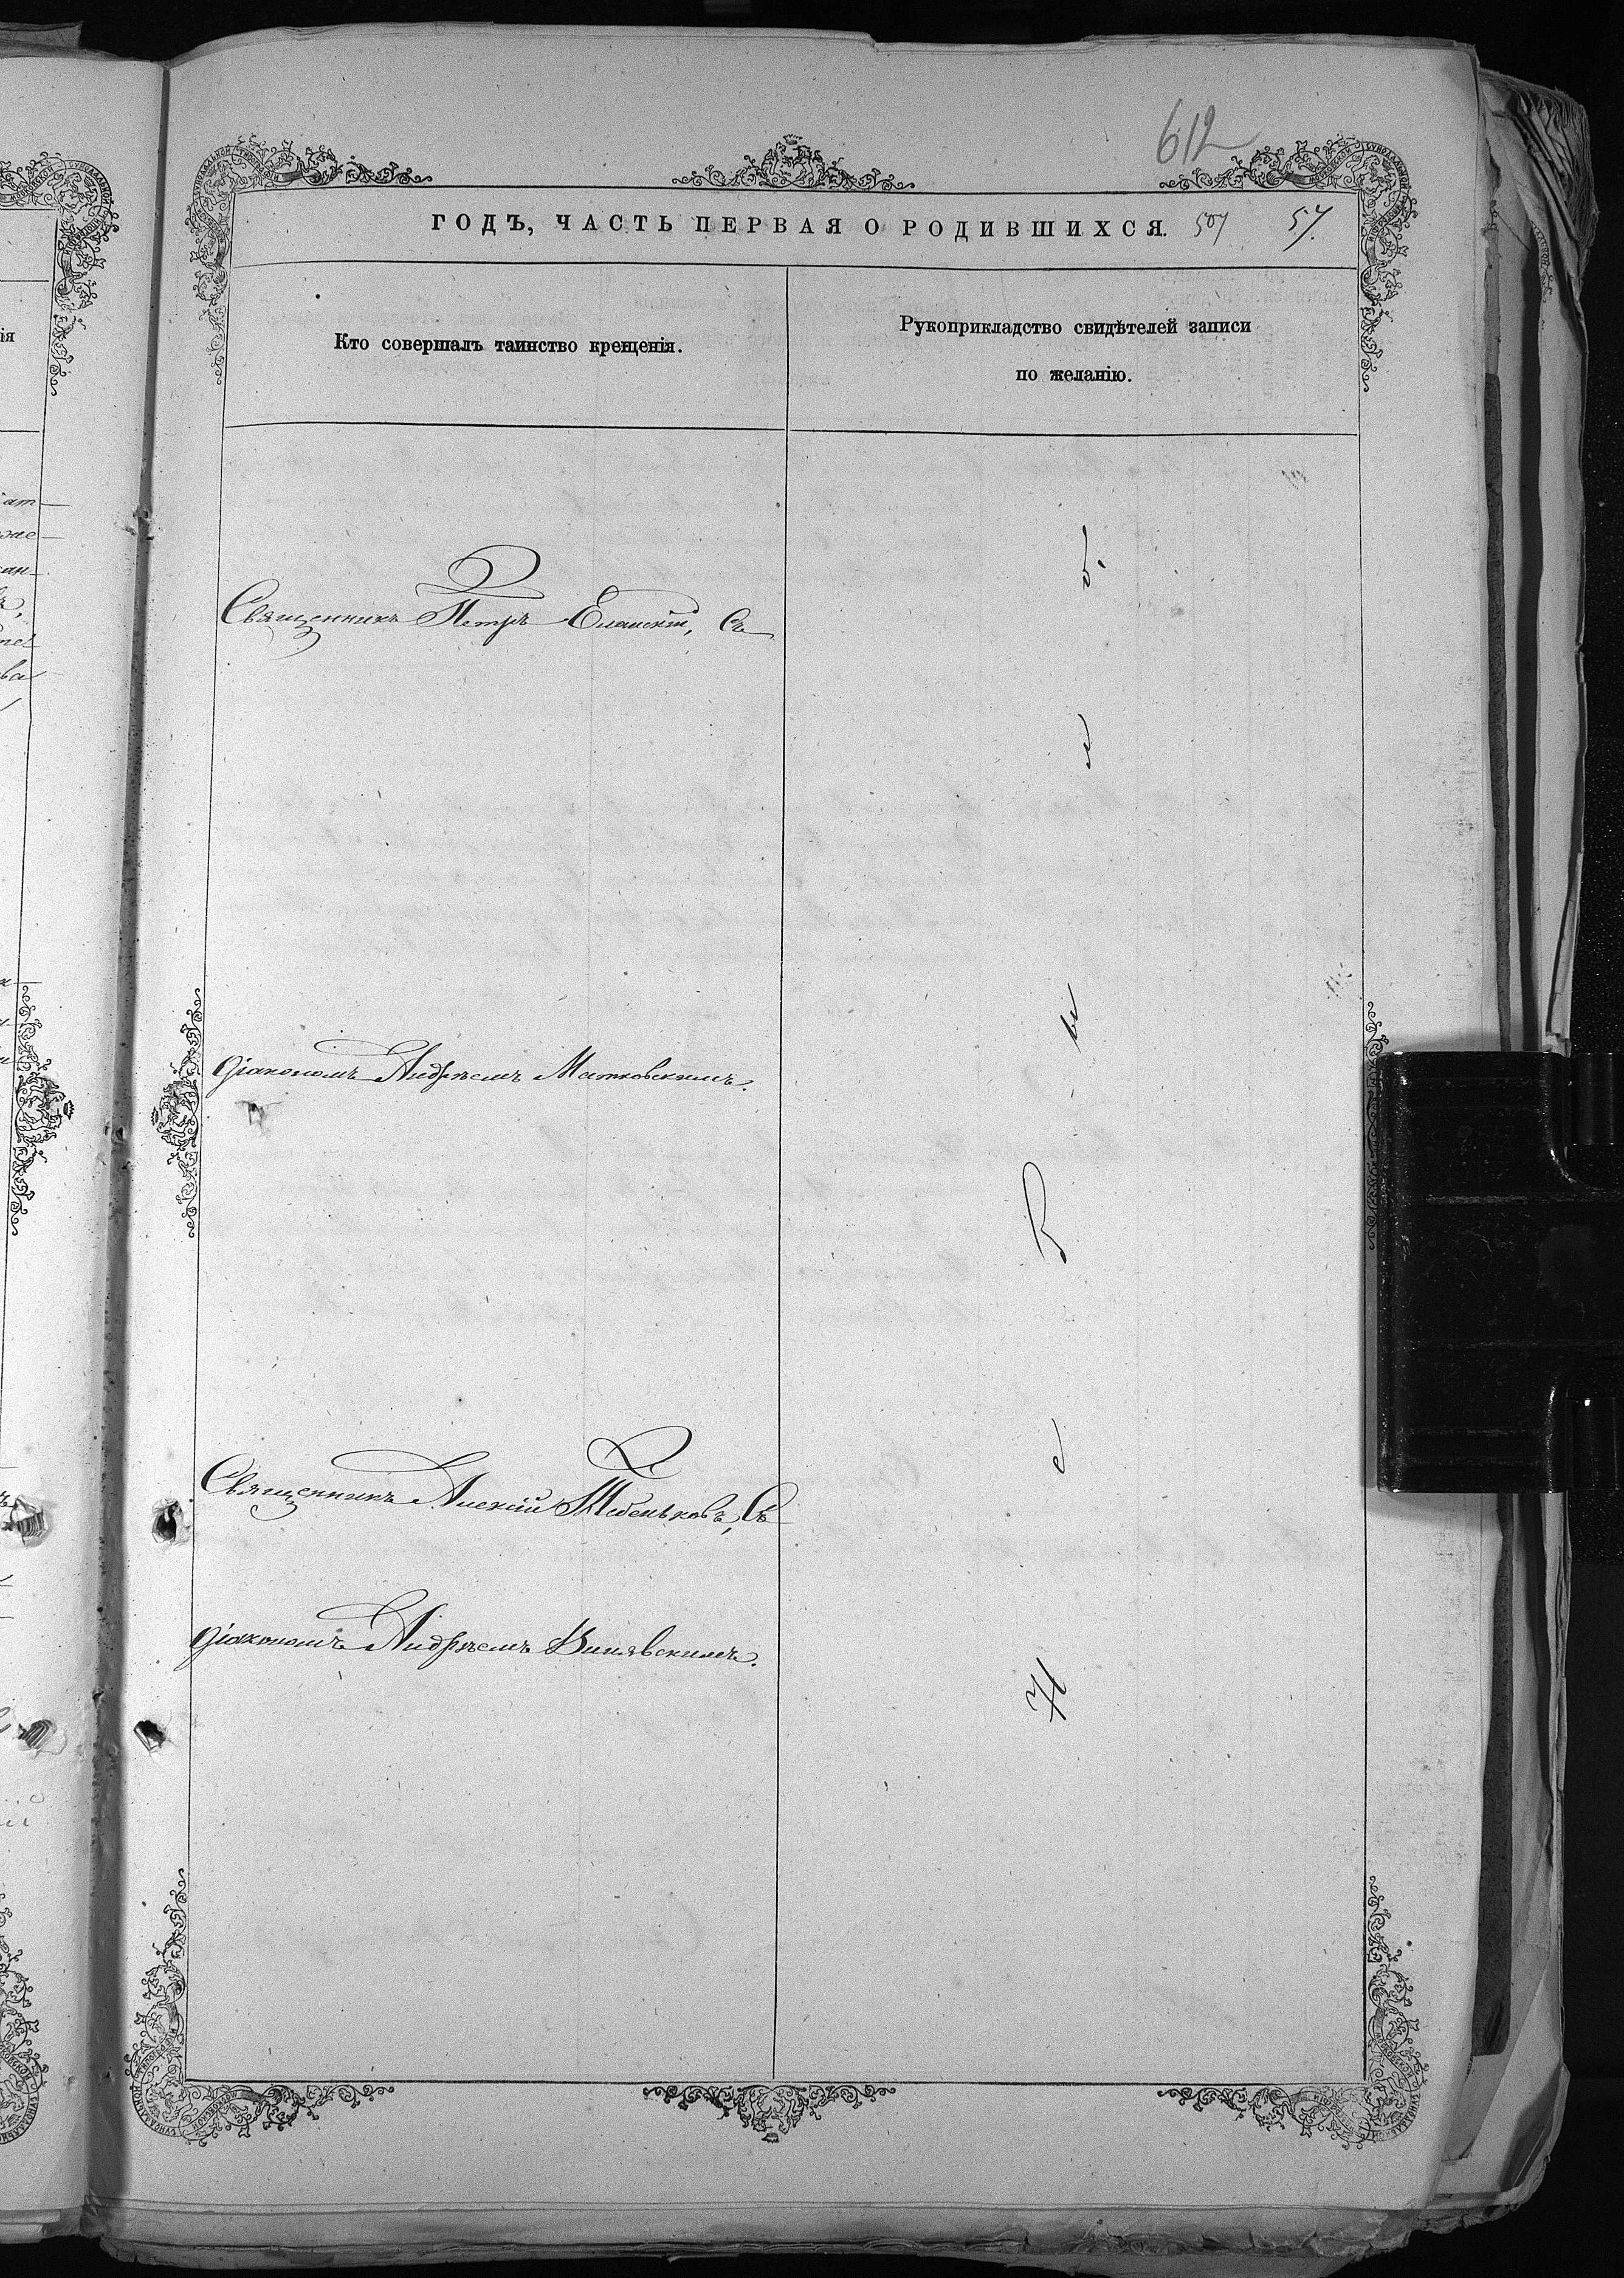 612
ГОДЪ, ЧАСТЬ ПЕРВАЯ О РОДИВШИХСЯ. 507 57.
Кто совершалъ таинство крещенія.
Рукоприкладство свидѣтелей записи
по желанію.
Священникъ Петръ Еланскій, съ
діакономъ Андреемъ Матковскимъ.
Священникъ Алексій Тебеньковъ, съ
діакономъ Андреемъ
Не было.